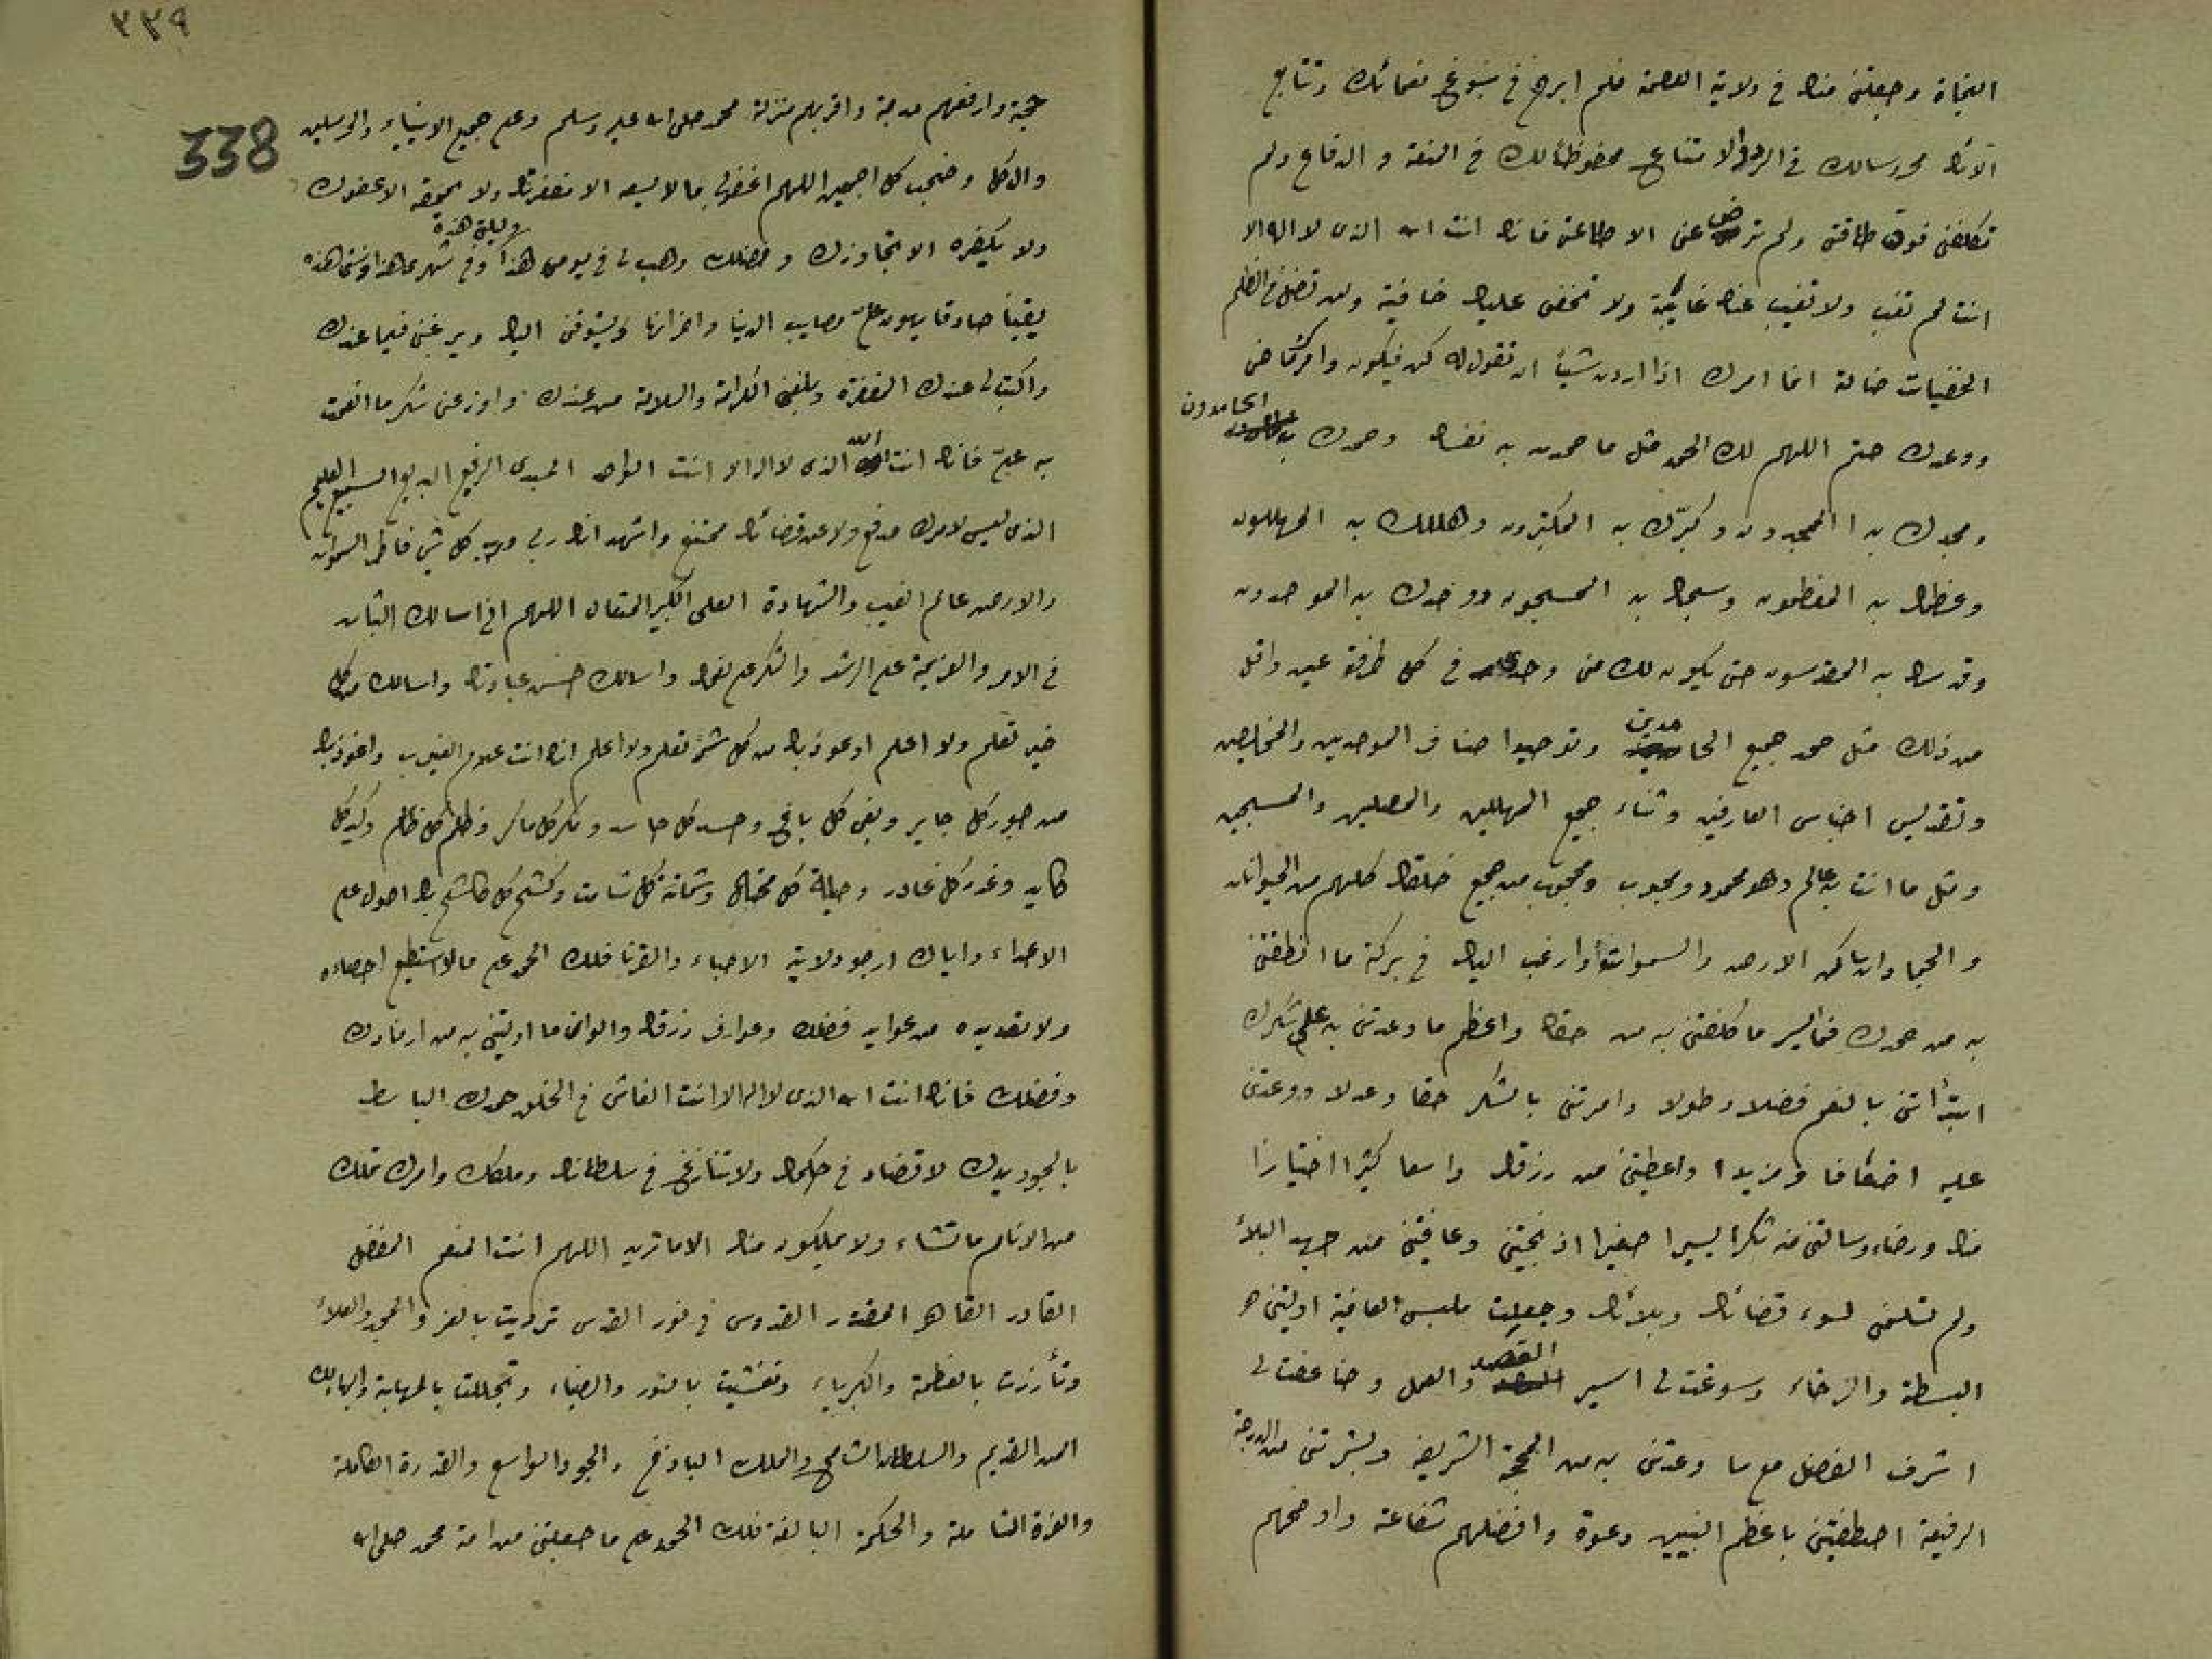 النجاة وجعلتنى منك فى ولاية العصمة فلم ابرح فى سبوغ نعمائك وتتابع
آلائك محروسا لك فى الرد والامتناع محفوظا لك فى المنعة والدفاع ولم
تكلفنى فوق طاقتى ولم ترض عنى الا طاعتى فانك انت الله الذى لا اله الا
انت لم تغب ولا تغيب عنك غايبة ولا تخفى عليك خافية ولن تضل فى الظلم
الخفيات ضالة انما امرك اذا اردت شيئا ان تقول له كن فيكون وامرك ماض
ووعدك حتم اللهم لك الحمد مثل ما حمدت به نفسك وحمدك به الحامدون
ومجدك به الممجدون وكبرك به المكبرون وهللك به المهللون
وعظمك به المعظمون وسبحك به المسبحون ووحدك به الموحدون
وقدسك به المقدسون حتى يكون لك منى وحدى فى كل طرفة عين واقل
من ذلك مثل حمد جميع الحامدين وتوحيد اصناف الموحدين والمخلصين
وتقديس اجناس العارفين وثناء جميع المهللين والمصلين والمسبحين
ومثل ما انت به عالم وهو محمود ومحبوب ومحجوب من جميع خلقك كلهم من الحيوانات
و الجمادات ساكن الارض والسموات وارغب اليك فى بركة ما انطقتنى
به من حمدك فما ايسر ما كلفتنى به من حقك واعظم ما وعدتنى به على شكرك
ابتدأتنى بالنعم فضلا وطولا وامرتنى بالشكر حقا وعدلا ووعدتنى
عليه اضعافا ومزيدا واعطيتنى من رزقك واسعا كثيرا اختيارا
منك ورضاء وسالتنى منه شكرا يسيرا صغيرا اذ نجيتنى وعافيتنى من جهد البلاء
ولم تسلمنى لسوء قضائك وبلائك وجعلت ملبسى العافية اوليتنى
البسطة والرخاء وسوغت لى ايسر القصد والعمل وضاعفت لى
اشرف الفضل مع ما وعدتنى به من المحجة الشريفة وبشرتنى من الدرجة
الرفيعة اصطفيتنى باعظم النبيين دعوة وافضلهم شفاعة واوضحهم
٣٣٩
338
حجة وارفعهم درجة واقربهم منزلة محمد صلى الله عليه وسلم وعلى جميع الانبياء والمرسلين
وال كل وصحب كل اجمعين اللهم اغفر لى مالا يسعه الا مغفرتك ولا يمحقه الا عفوك
ولا يكفره الا تجاوزك وفضلك وهب لى فى يومى هذا وليلتى هذه وفى شهرى هذا وسنتى هذه
يقينا صادقا يهون على مصايب الدنيا واحزانها ويشوقنى اليك ويرغبنى فيما عندك
واكتب لى عندك المغفرة وبلغنى الكرامة والسلامة من عندك واوزعنى شكر ما انعمت
به على فانك انت الله الذى لا اله الا انت الواحد المبدئ الرفيع البديع السميع العليم
الذى ليس لامرك مدفع ولا عن قضائك ممتنع واشهد انك ربى ورب كل شىء فاطر السموات
والارض عالم الغيب والشهادة العلى الكبير المتعال اللهم انى اسالك الثبات
فى الامر والعزيمة على الرشد والشكر على نعمك واسالك حسن عبادتك واسالك من كل
خير تعلم ولا اعلم اعوذ بك من كل شر تعلم ولا اعلم انك انت علام الغيوب واعوذ بك
من جور كل جاير وبغى كل باغ وحسد كل حاسد ومكر كل ماكر وظلم كل ظالم وكيد كل
كايد وغدر كل غادر وحيلة كل محتال وشماتة كل شامت وكشح كل كاشح بك اصول على
الاعداء واياك ارجو ولاية الاحباء والقرنا فلك الحمد على مالا استطيع احصاءه
ولا تعديده من عوايد فضلك وعوارف رزقك والوان ما اوليتنى به من ارفادك
وفضلك فانك انت الله الذى لا اله الا انت الفاشى فى الخلق حمدك الباسط
بالجود يدك لا تضاد فى حكمك ولا تنازع فى سلطانك وملكك وامرك تملك
من الانام ما تشاء ولا يملكون منك الا ما تريد اللهم انت المنعم المفضل
القادر القاهر المقتدر القدوس فى نور القدس ترديت بالعز والمجد والعلاء
وتأزرت بالعظمة والكبرياء وتغشيت بالنور والضياء وتجللت بالمهابة والبهاء لك
المن القديم والسلطان الشامخ والملك الباذخ والجود الواسع والقدرة الكاملة
والعزة الشاملة والحكمة البالغة فلك الحمد على ما جعلتنى من امة محمد صلى الله